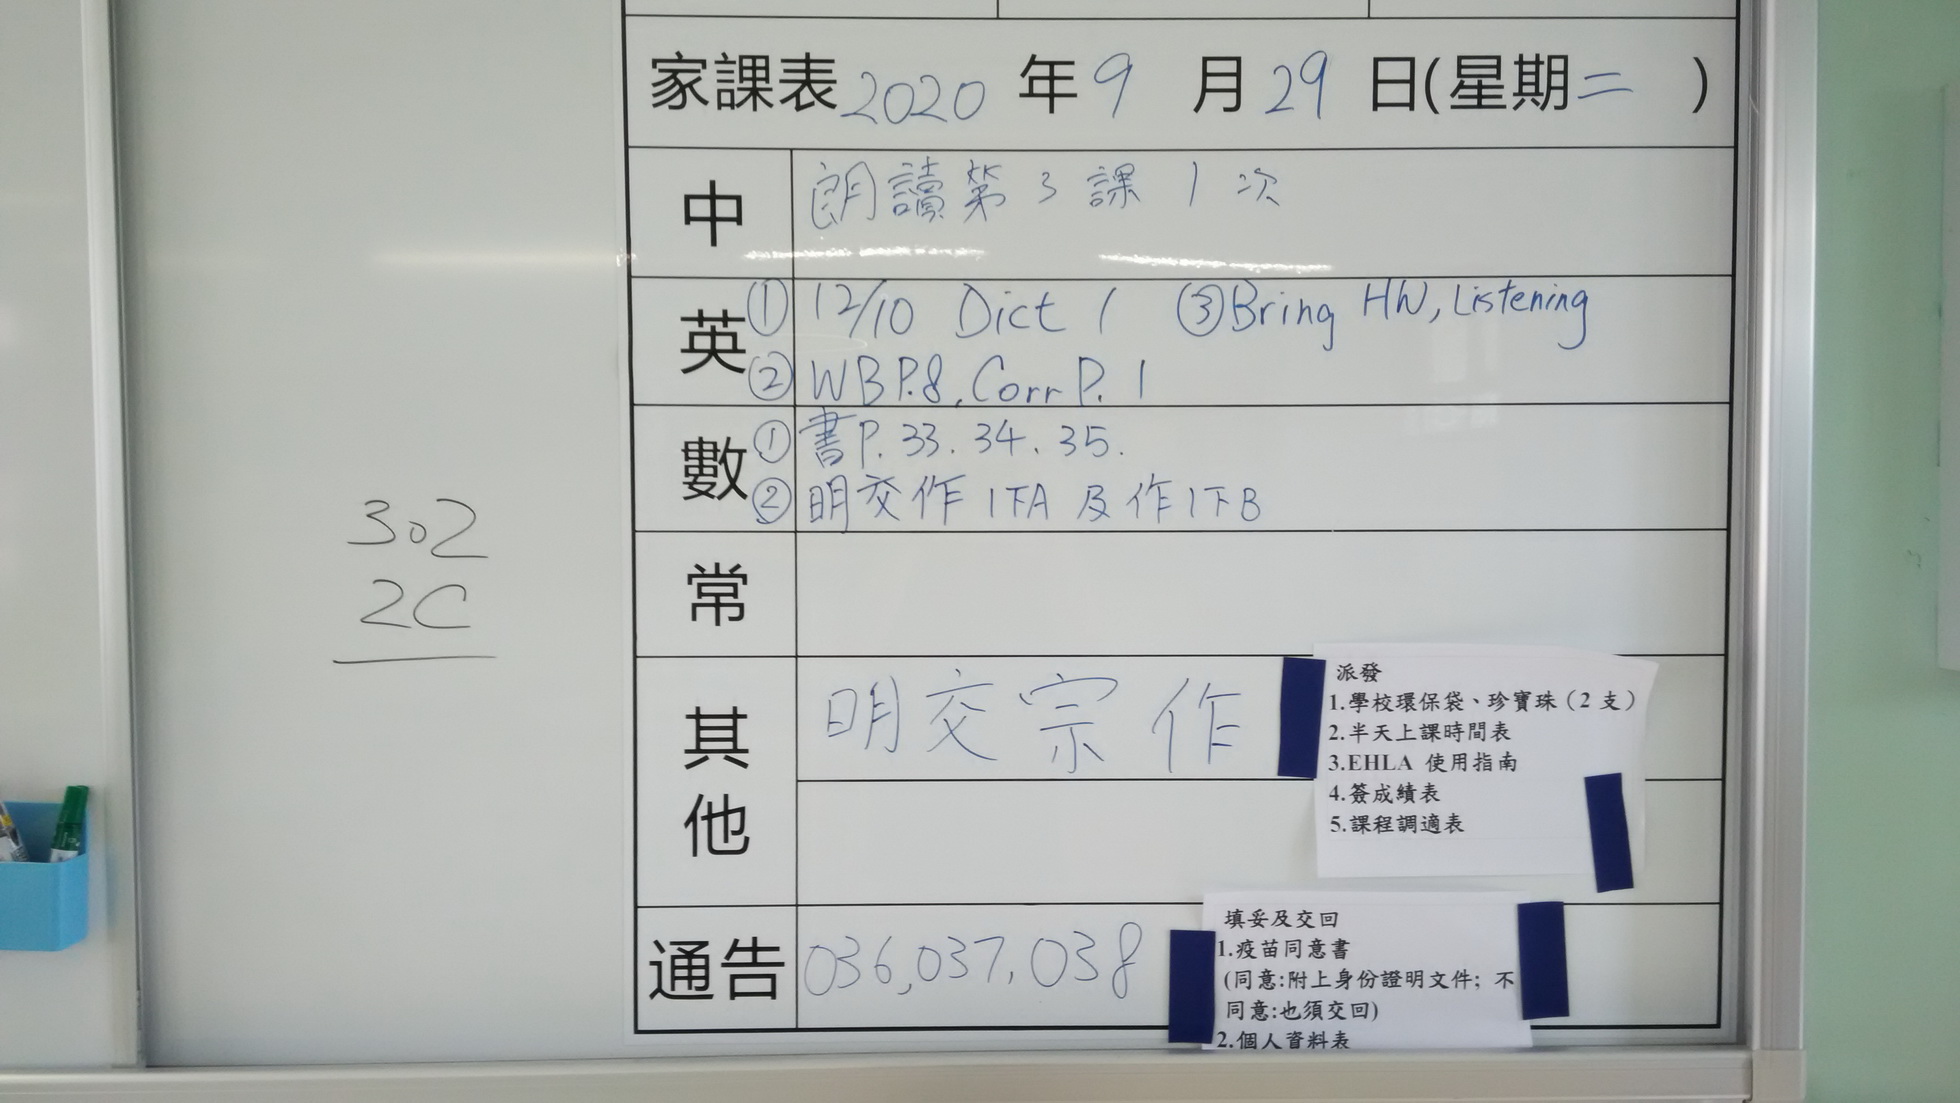 302
2C
家課表 2020 年 9 月 29 日(星期二)
中 朗讀第3課1次
英 ① 12/10 Dict 1 ③ Bring HW, Listening
② WB P.8, Corr P. 1
數 ① 書P. 33. 34. 35.
② 明交作1下A 及作1下B
常
其他 明交宗作
派發
1.學校環保袋、珍寶珠(2 支)
2.半天上課時間表
3.EHLA 使用指南
4.簽成績表
5.課程調適表
通告 036,037,038
填妥及交回
1.疫苗同意書
(同意:附上身份證明文件; 不
同意:也須交回)
2.個人資料表